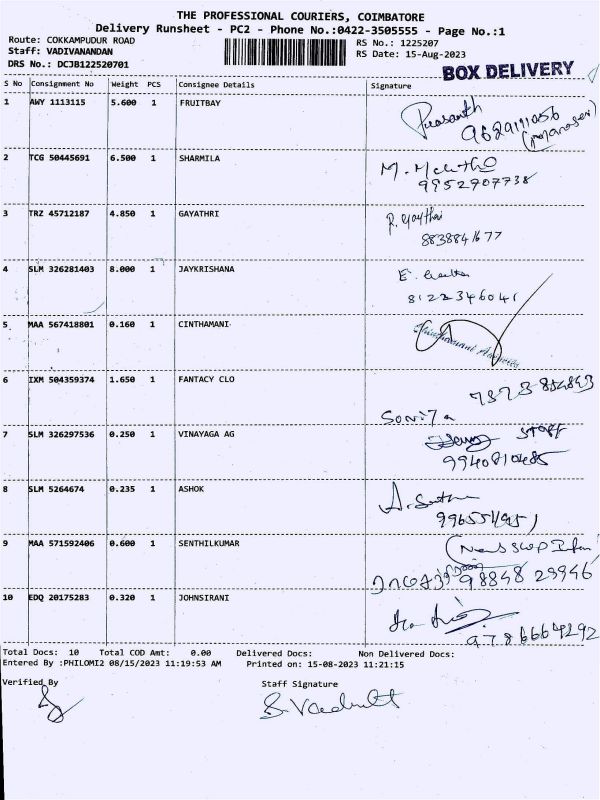 THE PROFESSIONAL COURIERS, COIMBATORE
Delivery Runsheet - PC2 - Phone No.:0422-3505555 - Page No.:1
Route: COKKAMPUDUR ROAD
RS No.: 1225207
Staff: VADIVANANDAN
RS Date: 15-Aug-2023
DRS No.: DCJB122520701
BOX DELIVERY
S No Consignment No Weight PCS Consignee Details Signature
1 AWY 1113115 5.600 1 FRUITBAY
Prasanth
9629111056
(manager)
2 TCG 50445691 6.500 1 SHARMILA
9952907738
3 TRZ 45712187 4.850 1 GAYATHRI
R. Gayathri
8838841677
4 SLM 326281403 8.000 1 JAYKRISHANA
8122346041
5 MAA 567418801 0.160 1 CINTHAMANI
6 IXM 504359374 1.650 1 FANTACY CLO
7 SLM 326297536 0.250 1 VINAYAGA AG
Staff
8 SLM 5264674 0.235 1 ASHOK
9 MAA 571592406 0.600 1 SENTHILKUMAR
98848 29946
10 EDQ 20175283 0.320 1 JOHNSIRANI
9786664292
Total Docs: 10 Total COD Amt: 0.00 Delivered Docs: Non Delivered Docs:
Entered By :PHILOMI2 08/15/2023 11:19:53 AM Printed on: 15-08-2023 11:21:15
Verified By Staff Signature